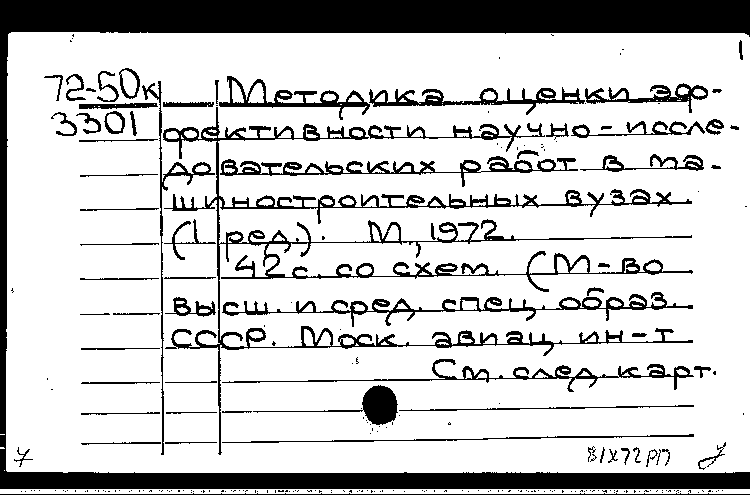 1
72-50к Методика оценки эф-
3301 фективности научно-иссле-
довательских работ в ма-
шиностроительных вузах.
(1 ред.). М., 1972.
42 с. со схем. (М-во
высш. и сред. спец. образ.
СССР. Моск. авиац. ин-т
См. след. карт.